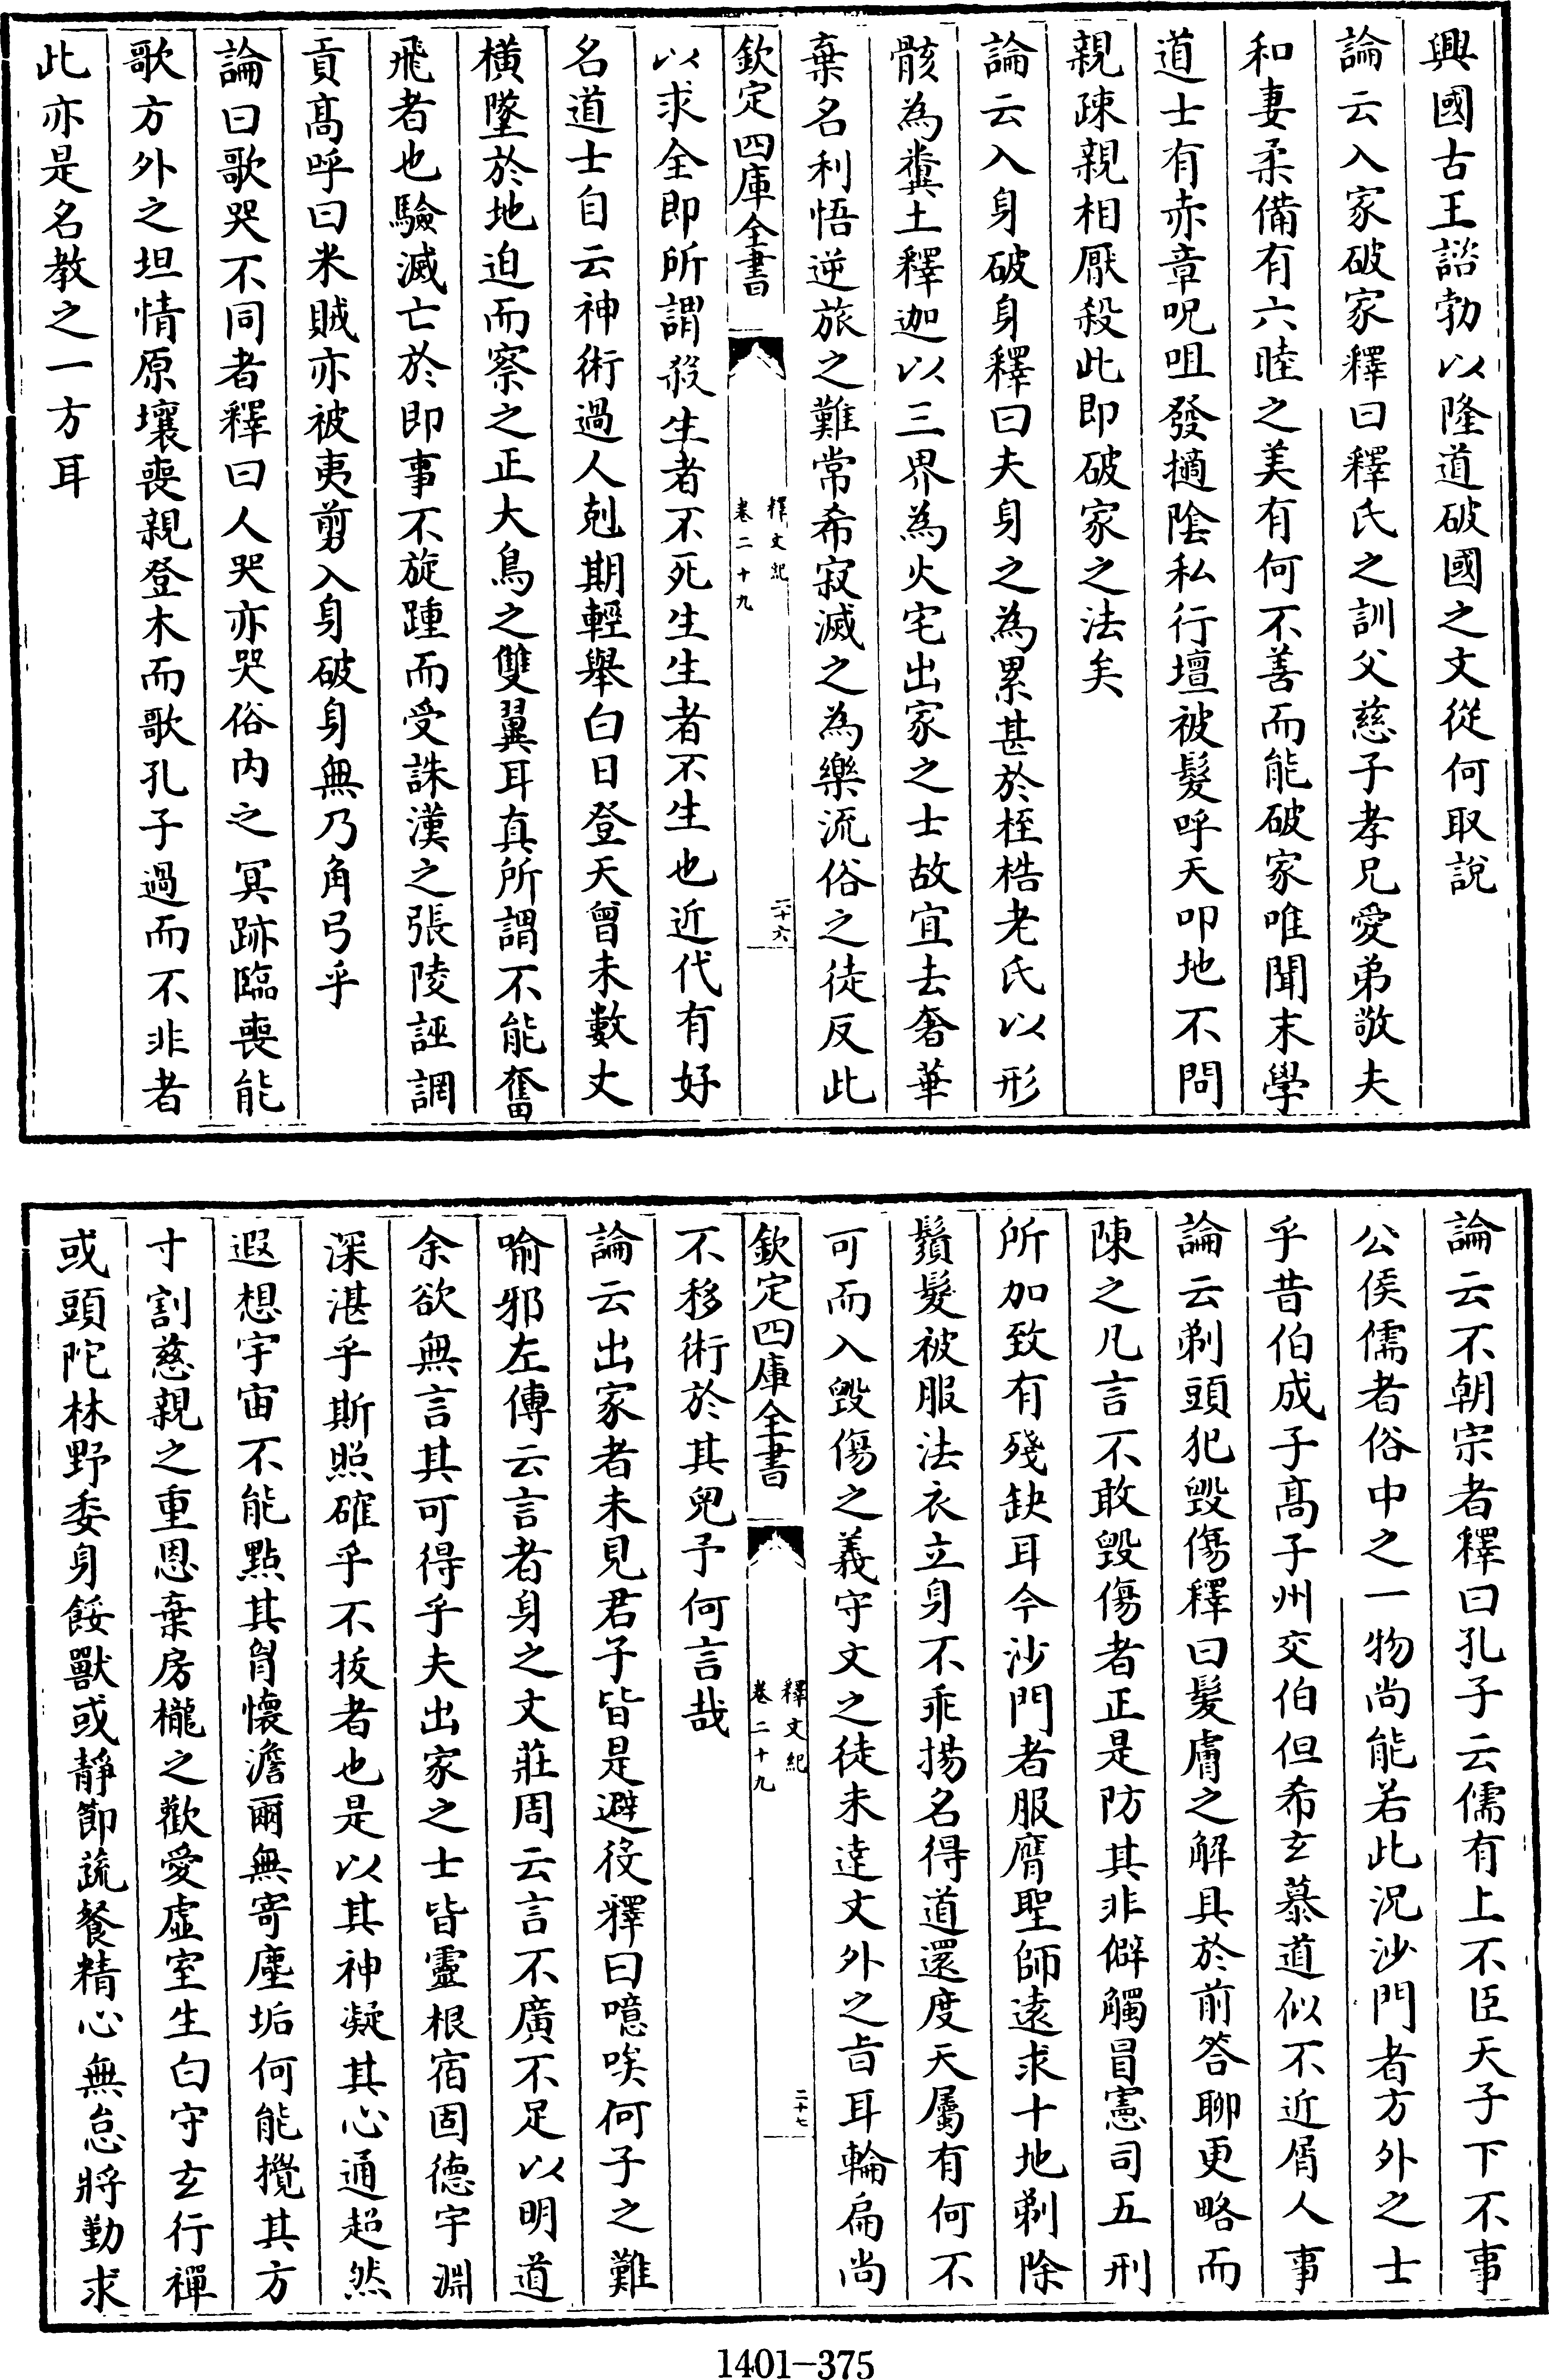 興國古王諮勃以隆道破國之文從何取說
論云入家破家釋曰釋氏之訓父慈子孝兄愛弟敬夫
和妻柔備有六睦之美有何不善而能破家唯聞末學
道士有赤章呪咀發擿陰私行壇被髮呼天叩地不問
親疎親相厭殺此即破家之法矣
論云入身破身釋曰夫身之為累甚於桎梏老氏以形
骸為糞土釋迦以三界為火宅出家之士故宜去奢華
棄名利悟逆旅之難常希寂滅之為樂流俗之徒反此
欽定四庫全書
釋文紀
卷二十九
二十六
以求全即所謂殺生者不死生生者不生也近代有好
名道士自云神術過人剋期輕舉白日登天曾未數丈
橫墜於地迫而察之正大鳥之雙翼耳真所謂不能奮
飛者也驗滅亡於即事不旋踵而受誅漢之張陵誣調
貢髙呼曰米賊亦被夷剪入身破身無乃角弓乎
論曰歌哭不同者釋曰人哭亦哭俗内之冥跡臨喪能
歌方外之坦情原壤喪親登木而歌孔子過而不非者
此亦是名教之一方耳
論云不朝宗者釋曰孔子云儒有上不臣天子下不事
公侯儒者俗中之一物尚能若此況沙門者方外之士
乎昔伯成子髙子州交伯但希玄慕道似不近屑人事
論云剃頭犯毀傷釋曰髮膚之解具於前答聊更略而
陳之凡言不敢毀傷者正是防其非僻觸冒憲司五刑
所加致有殘缺耳今沙門者服膺聖師逺求十地剃除
鬚髮被服法衣立身不乖揚名得道還度天屬有何不
可而入毀傷之義守文之徒未達文外之旨耳輪扁尚
欽定四庫全書
釋文紀
卷二十九
二十七
不移術於其兒予何言哉
論云出家者未見君子皆是避役釋曰噫唉何子之難
喻邪左傳云言者身之文莊周云言不廣不足以明道
余欲無言其可得乎夫出家之士皆靈根宿固德宇淵
深湛乎斯照確乎不拔者也是以其神凝其心通超然
遐想宇宙不能點其胷懷澹爾無寄塵垢何能攪其方
寸割慈親之重恩棄房櫳之歡愛虛室生白守玄行禪
或頭陀林野委身餧獸或靜節蔬餐精心無怠將勤求
1401-375